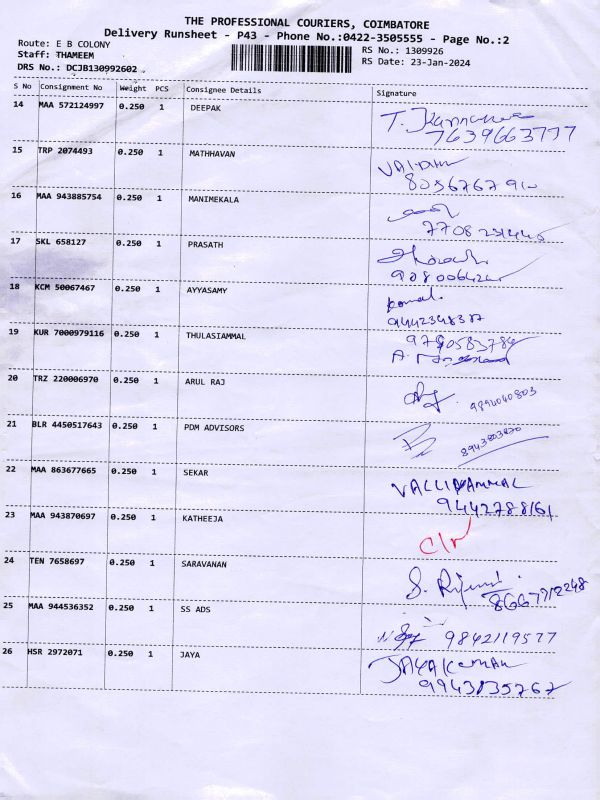 THE PROFESSIONAL COURIERS, COIMBATORE
Delivery Runsheet - P43 - Phone No.:0422-3505555 - Page No.:2
Route: E B COLONY
Staff: THAMEEM
DRS No.: DCJB130992602
RS No.: 1309926
RS Date: 23-Jan-2024
S No Consignment No Weight PCS Consignee Details Signature
14 MAA 572124997 0.250 1 DEEPAK
7639663777
15 TRP 2074493 0.250 1 MATHHAVAN
16 MAA 943885754 0.250 1 MANIMEKALA
17 SKL 658127 0.250 1 PRASATH
18 KCM 50067467 0.250 1 AYYASAMY
9442348387
19 KUR 7000979116 0.250 1 THULASIAMMAL
20 TRZ 220006970 0.250 1 ARUL RAJ
9894040803
21 BLR 4450517643 0.250 1 PDM ADVISORS
8943803830
22 MAA 863677665 0.250 1 SEKAR
VALLIYAMMAL
9442788161
23 MAA 943870697 0.250 1 KATHEEJA
24 TEN 7658697 0.250 1 SARAVANAN
25 MAA 944536352 0.250 1 SS ADS
9842119577
26 HSR 2972071 0.250 1 JAYA
JAYAKUMAR
9943835767